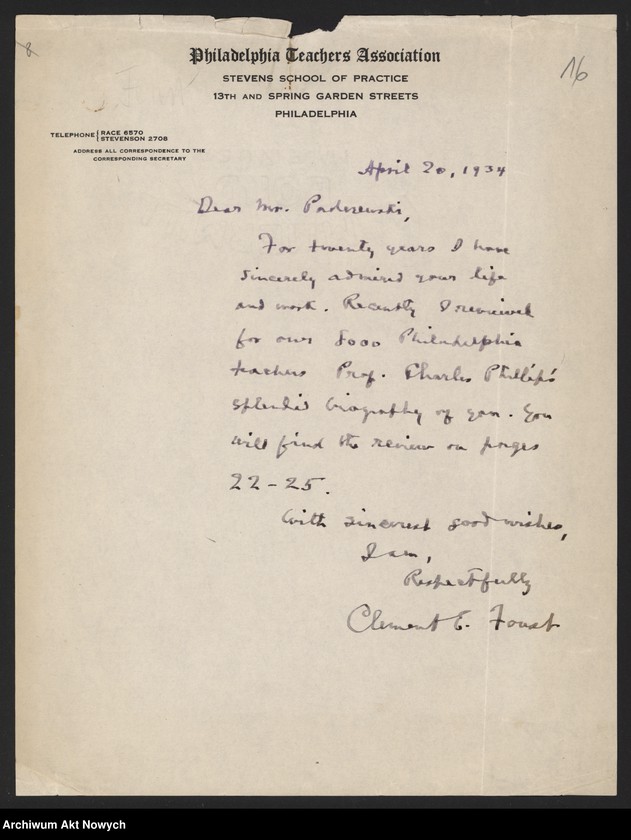 8
Philadelphia Teachers Association
16
STEVENS SCHOOL OF PRACTICE
13TH AND SPRING GARDEN STREETS
PHILADELPHIA
TELEPHONE { RACE 6570
STEVENSON 2708
ADDRESS ALL CORRESPONDENCE TO THE
CORRESPONDING SECRETARY
April 20, 1934
Dear Mr. Paderewski,
For twenty years I have
sincerely admired your life
and work. Recently I reviewed
for our 8000 Philadelphia
teachers Prof. Charles Phillips'
splendid biography of you. You
will find the review on pages
22-25.
With sincerest good wishes,
I am,
Respectfully
Clement E. Foust
Archiwum Akt Nowych